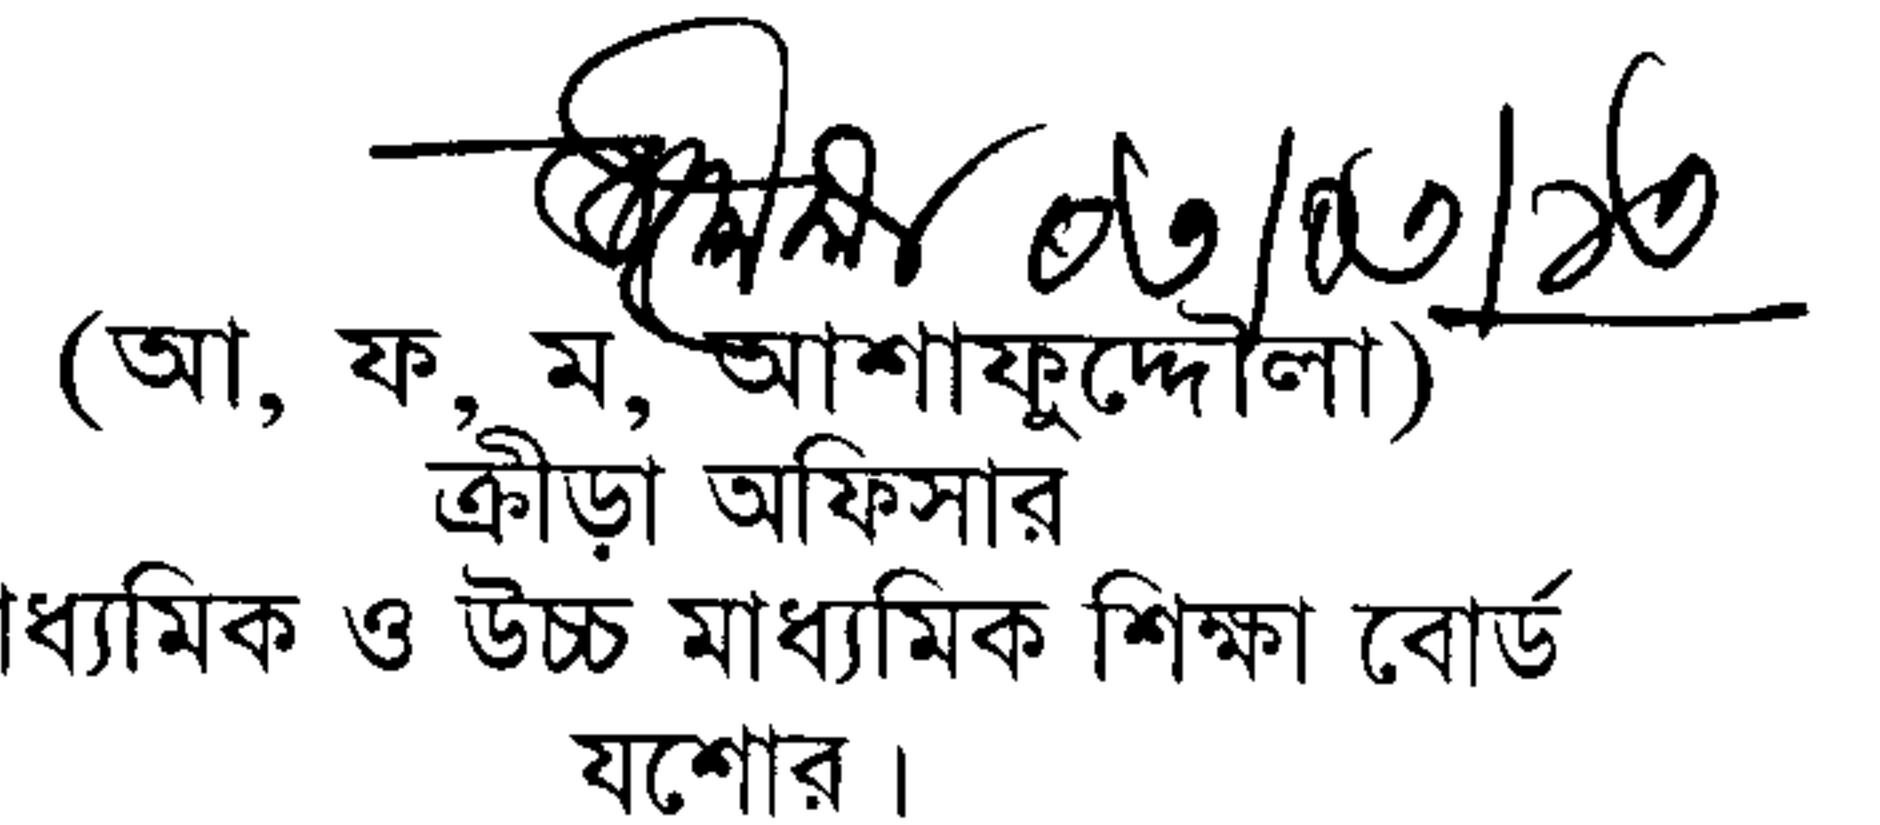 (আ, ফ, ম, আশাফুদ্দৌলা)
ক্রীড়া অফিসার
াধ্যমিক ও উচ্চ মাধ্যমিক শিক্ষা বোর্ড
যশোর ।